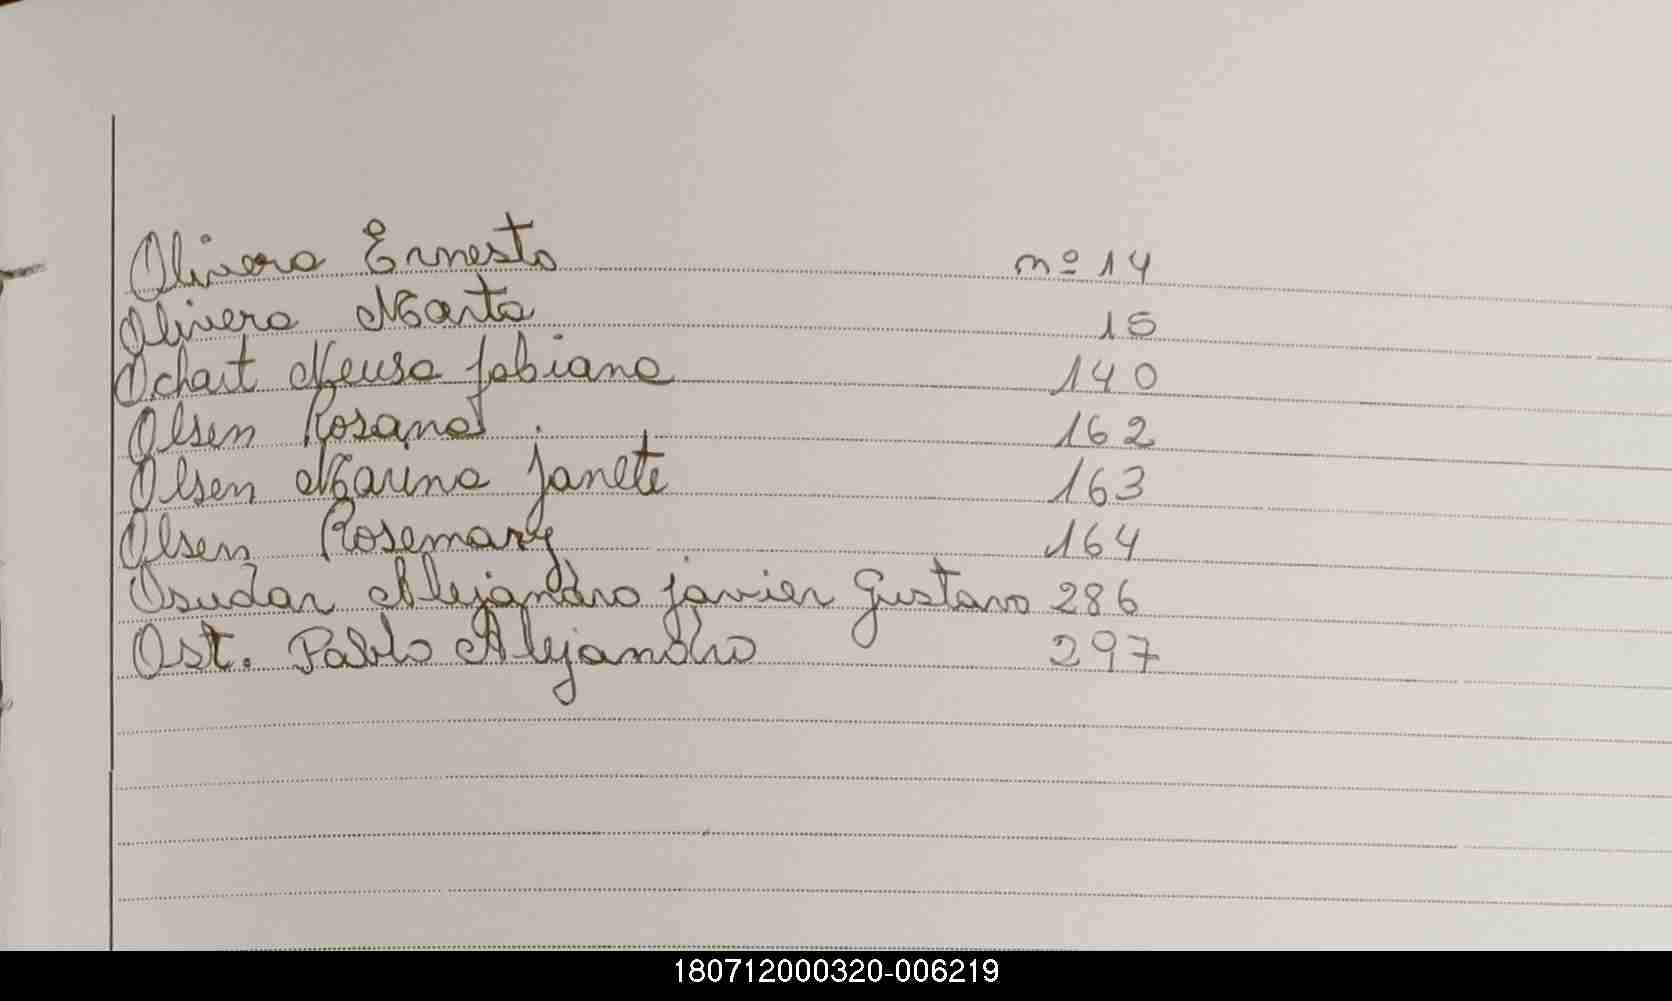 Olivera Ernesto nº 14
Olivera Marta 15
Ochait Neusa fabiana 140
Olsen Rosana 162
Olsen Marina Janete 163
Olsen Rosemary 164
Osudar Alejandro javier Gustavo 286
Ost. Pablo Alejandro 297
180712000320-006219